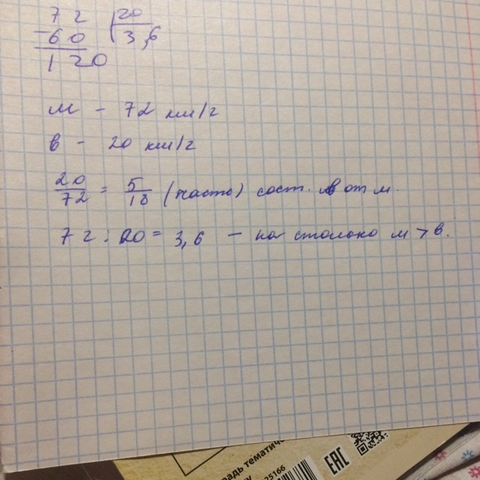 72 | 20
-60 | 3,6
120
м - 72 км/г
в - 20 км/г
20/72 = 5/18 (часто) сост. в от м.
72 : 20 = 3,6 - на столоко м > в.
адь тематиче
25166
ЕАС